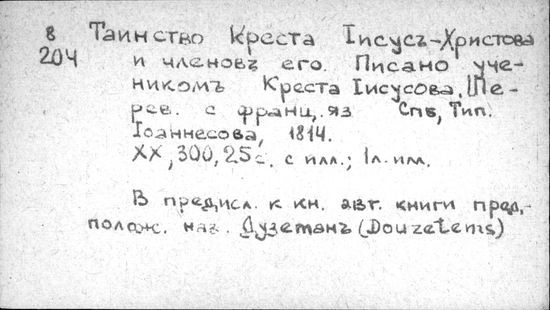 8
204
Таинство Креста Iисусъ-Христова
и членовъ его. Писано уче-
никомъ Креста Iисусова. Пе-
рев. с франц. яз Спб, Тип.
Iоаннесова, 1814.
XX, 300, 25с. с илл.; 1л. илл.
В предисл. к кн. авт. книги пред-
полож. наз. Дузетанъ (Douzetems)